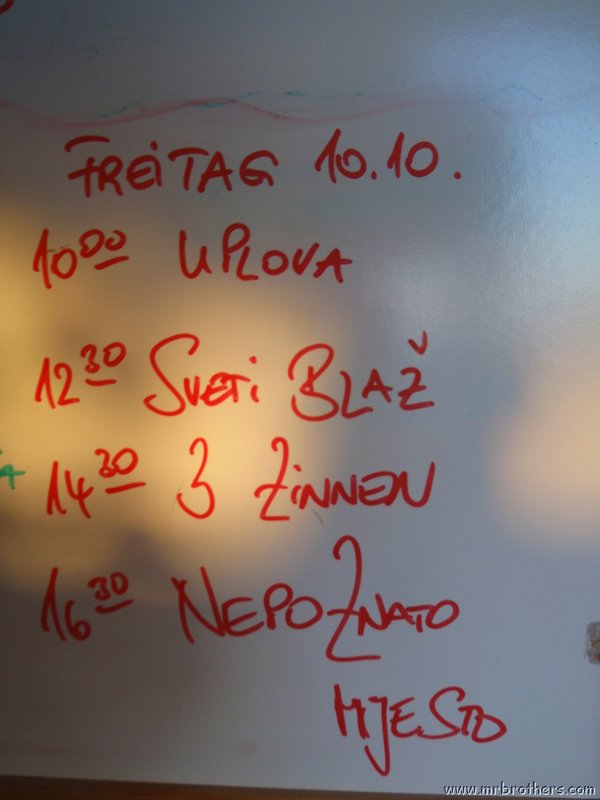 FREITAG 10.10.
10⁰⁰ UPLOVA
12³⁰ SVETI BLAŽ
14³⁰ 3 ZINNEN
16³⁰ NEPOZNATO
MJESTO
www.mrbrothers.com